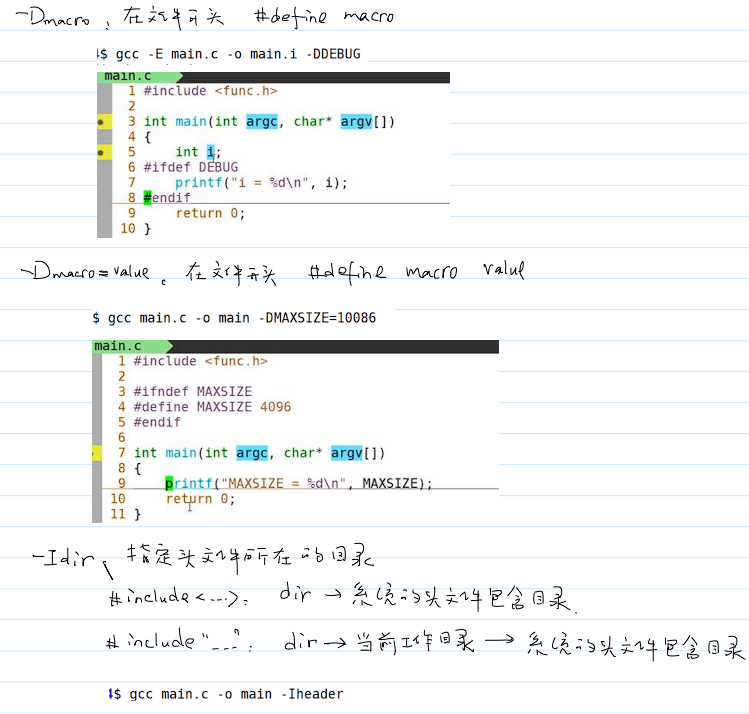 -Dmacro, 在文件开头 #define macro
$ gcc -E main.c -o main.i -DDEBUG
main.c
1 #include <func.h>
2
3 int main(int argc, char* argv[])
4 {
5     int i;
6 #ifdef DEBUG
7     printf("i = %d\n", i);
8 #endif
9     return 0;
10 }
-Dmacro=value。在文件开头 #define macro value
$ gcc main.c -o main -DMAXSIZE=10086
main.c
1 #include <func.h>
2
3 #ifndef MAXSIZE
4 #define MAXSIZE 4096
5 #endif
6
7 int main(int argc, char* argv[])
8 {
9     printf("MAXSIZE = %d\n", MAXSIZE);
10     return 0;
11 }
-Idir, 指定头文件所在的目录
#include<...>: dir → 系统的头文件包含目录.
#include"...": dir → 当前工作目录 → 系统的头文件包含目录
$ gcc main.c -o main -Iheader